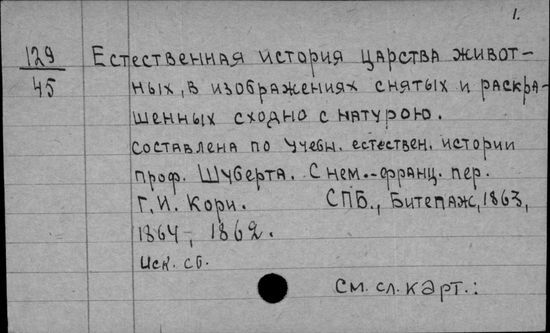 1.
129
45
Естественная история царства живот-
ных, в изображениях снятых и раскра-
шенных сходно с натурою.
Составлена по учебн. естествен. истории
проф. Шуберта. С нем.-франц. пер.
Г.И. Корн. СПБ., Битепаж, 1863,
1864, 1862.
Иск. сб.
См. сл. карт.: